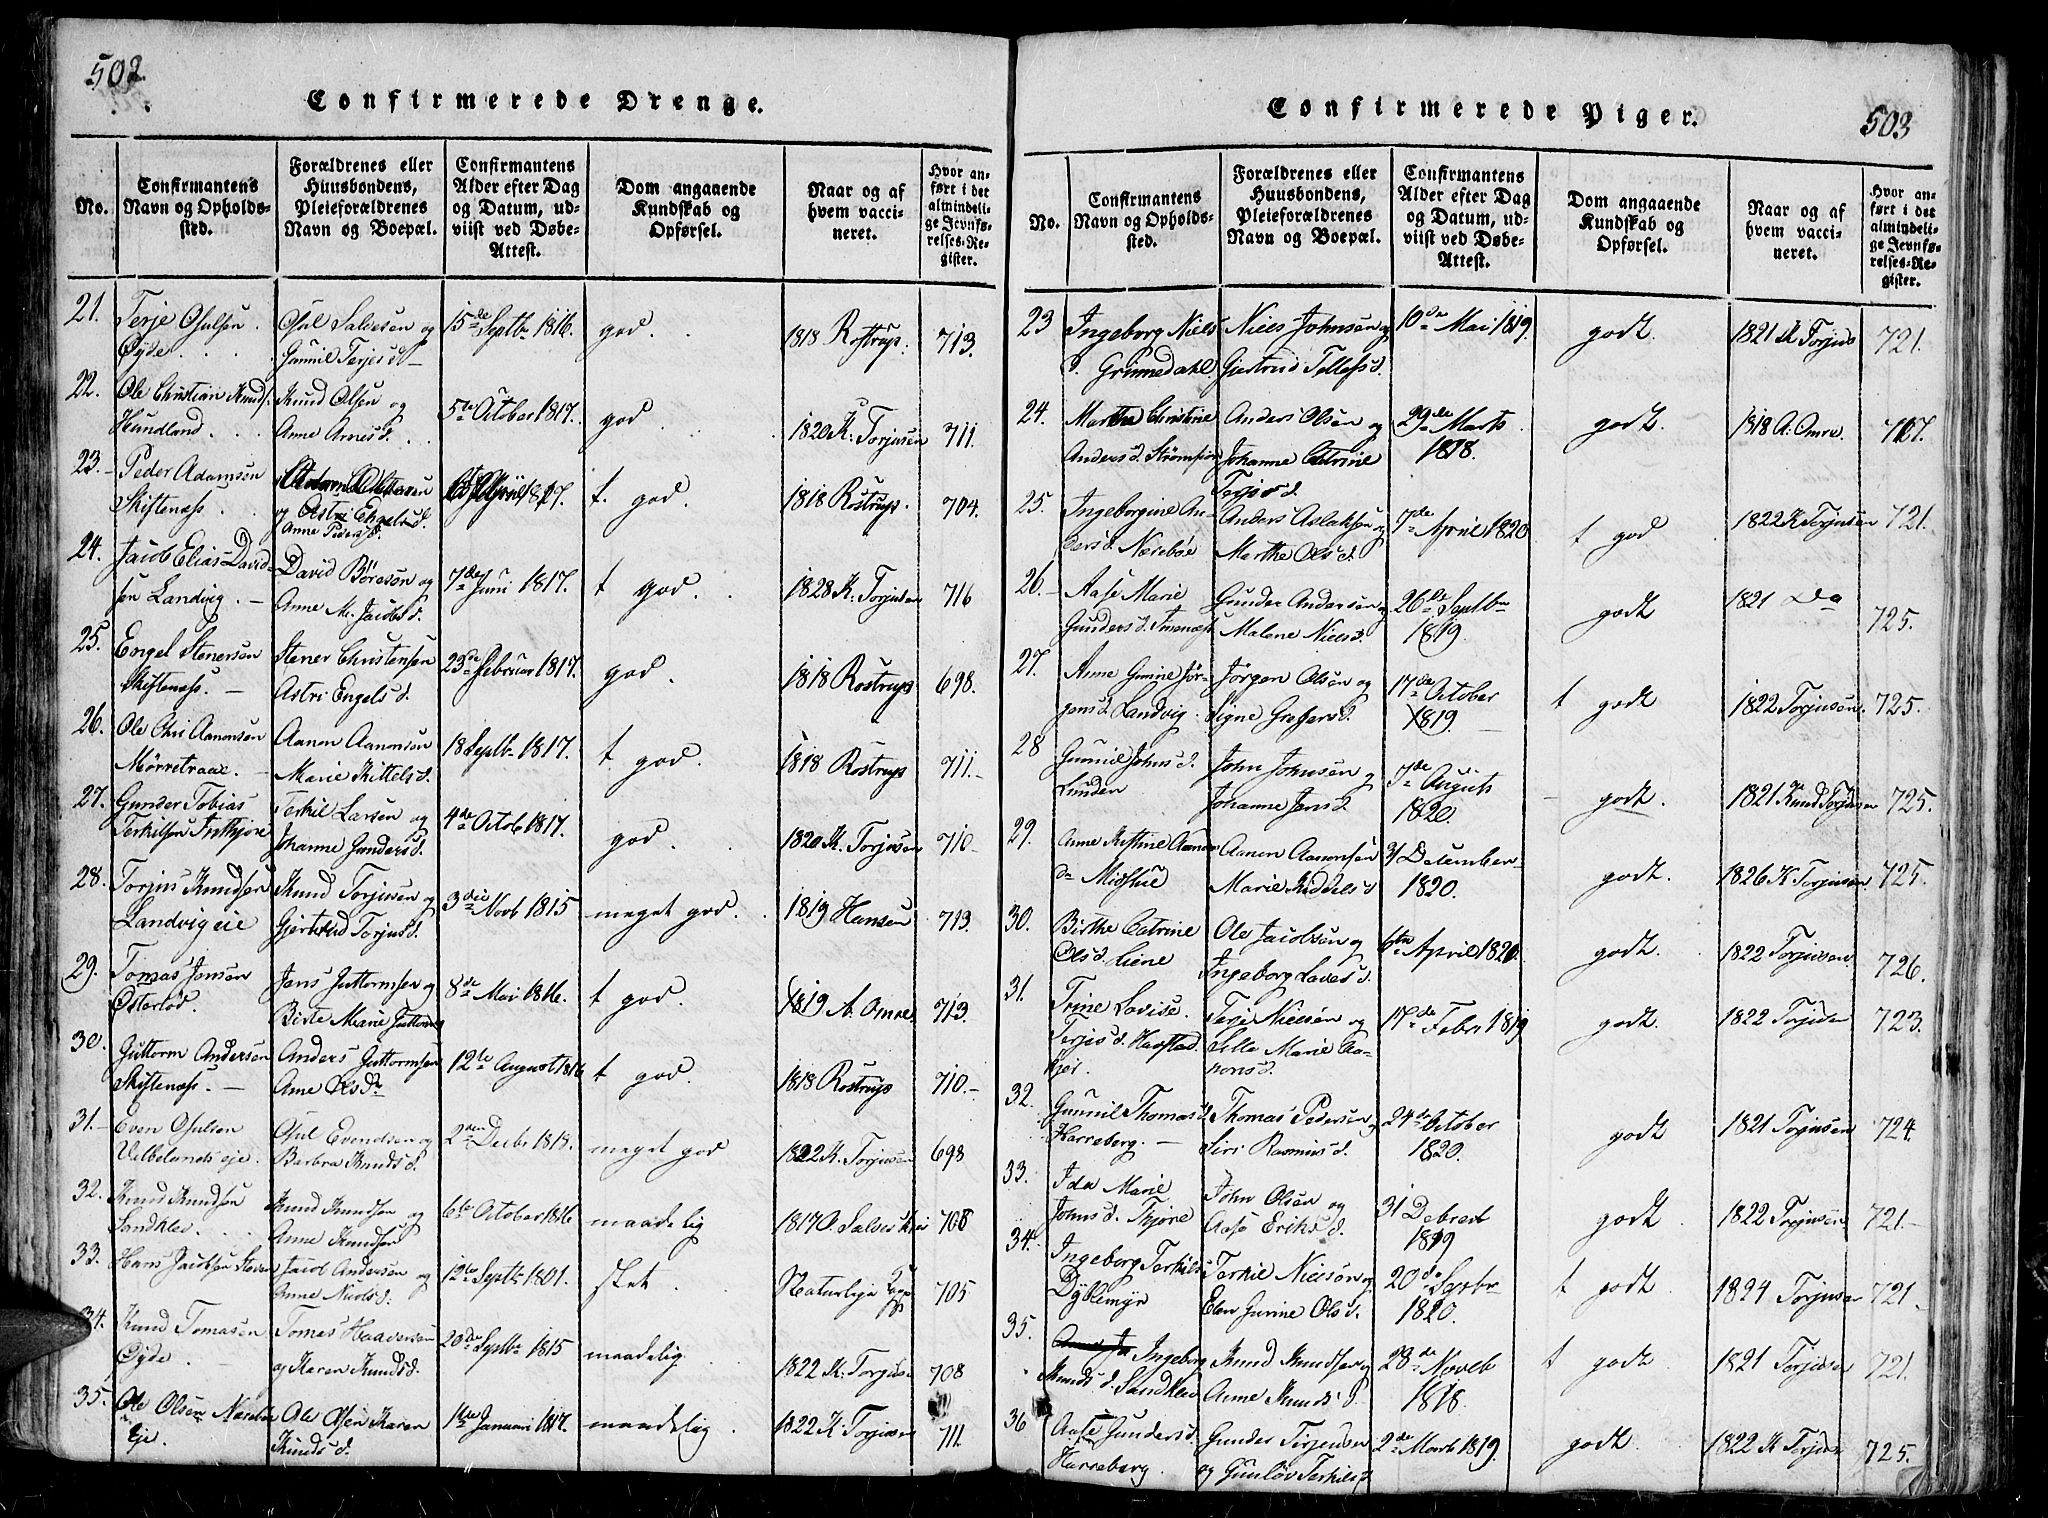 502.
Confirmerede Drenge.
No.
Confirmantens Navn og Opholdssted.
Forældrenes eller Huusbondens, Pleieforældrenes Navn og Boepæl.
Confirmantens Alder efter Dag og Datum, udviist ved Døbe-Attest.
Dom angaaende Kundskab og Opførsel.
Naar og af hvem vaccineret.
Hvor anført i det almindelige Jevnførelses-Register.
21. Terje Osulsen Osul Salvesen og 15de Septbr 1816. god. 1818 Rostrup. 713.
Øyde Gunnil Terjes d.
22. Ole Christian Knuds. Knud Olsen og 5te October 1817. god. 1820 K. Torjusen 711.
Hundland Anne Arnes d.
23. Peder Adamsen t. god 1818 Rostrup. 704.
Skiftenæss. og Astri Engels d.
Anne Peders d.
24. Jacob Elias David- David Böresen og 7de Juni 1817. t god. 1828 K. Torjusen 716
sen Landvig. Anne M. Jacobs d.
25. Engel Stenersen Stener Christensen 23de Februar 1817. god. 1818 Rostrup 698.
Skiftenæss. Astri Engels d.
26. Ole Chri Aanonsen Aanon Aanonsen 18 Septbr 1817. t. god. 1818 Rostrup 711.
Mørretraae. Marie Kittels d.
27. Gunder Tobias Terkil Larsen og 4de Octob 1817. god. 1820 K. Torjusen 710
Terkilsen Inthjore Johanne Gunders d.
28. Torjus Knudsen Knud Torjusen og 3die Novb 1815 meget god. 1819 Hansen 713.
Landvig eie Gjertrud Torjus d.
29. Tomas Jensen Jens Guttormsen og 8de Mai 1816. t god. 1819 A. Omre 713.
Østerlød. Birte Marie Guttorms
30. Guttorm Andersen Anders Guttormsen 12te August 1816 t god. 1818 Rostrup 710.
Skiftenæss. Anne Ols dr
31. Even Osulsen Osul Evendsen og 2den Decbr 1815. meget god 1822 K. Torjusen 698
Velbelands eje. Barbra Knuds d.
32. Knud Knudsen Knud Knudsen og 6te October 1816 maadelig 1817 O. Salves 708
Sandklev Anne Knudsen
33. Hans Jacobsen Jacob Andersen og 12te Septbr 1801. slet. Naturlige Kopp 705
Anne Niels d.
34. Knud Tomasen Tomas Haaversen 20de Septbr 1815 maadelig 1822 K. Torjuse 708
Øyde. og Karen Knuds d.
35. Ole Olsen Næsebøe Ole Olsen Karen 1te Januari 1817. maadelig. 1822 K. Torjusen 711.
Eje. Knuds d.
503
Confirmerede Piger.
No.
Confirmantens Navn og Opholdssted.
Forældrenes eller Huusbondens, Pleieforældrenes Navn og Boepæl.
Confirmantens Alder efter Dag og Datum, udviist ved Døbe-Attest.
Dom angaaende Kundskab og Opførsel.
Naar og af hvem vaccineret.
Hvor anført i det almindelige Jevnførelses-Register.
23 Ingeborg Niels Niels Johnsen og 10de Mai 1819. godt. 1821 K Torjus 721.
d. Grimedahl Giertrud Tellefs d.
24. Marthe Christine Anders Olsen og 29de Marts godt. 1818 A. Omre 717.
Anders d. Strømsør Johanne Catrine 1818.
Terjes d.
25. Ingeborgine An- Anders Aslaksen og 7de April 1820 t god 1822 K Torjusen 721.
ders d. Næsebøe Marthe Ols d.
26. Aase Marie Gunder Andersen og 26de Septbr godt 1821 Do 725.
Gunders d. Imenæs Malene Niels d. 1819.
27. Anne Gunine Jør- Jørgen Olsen og 17de October t godt 1822 Torjusen 725.
gens d. Landvig. Signe Grefers d. 1819.
28 Gunnil Johns d. John Johnsen og 7de August godt. 1821 Knud Torjusen 725.
Lunden Johanne Jens d. 1820.
29. Anne Kistine Aanons Aanon Aanonsen 31 December godt. 1826 K Torjusen 725.
dr Midstue Marie Kiddels d 1820.
30. Birthe Catrine Ole Jacobsen og 6te April 1820. godt. 1822 Torjusen 726.
Ols d. Liene Ingeborg Laves d.
31. Trine Lovise Terje Nielsen og 17de Febr 1819 godt. 1822 Torjusen 723.
Terjes d. Havstad. Sille Marie Aa-
kjer. nons d.
32. Gunnil Thomas d. Thomas Pedersen og 24de October godt 1821 Torjusen 724.
Harreberg. Siri Rasmus d. 1820.
33. Ida Marie John Olsen og 31 Debrest godt 1822 Torjusen 721.
Johns d. Thjore Aase Eriks d. 1819
34. Ingeborg Terkils Terkil Nielsen og 20de Sepbr t godt 1824 Torjusen 721
Dyblemyr Elen Gurine Ols d. 1820.
35. Ingeborg Knud Knudsen og 28de Noveb t godt 1821 Torjusen 721.
Knuds d. Sandklev Anne Knuds d 1818.
36 Aase Gunders d. Gunder Terjesen 2de Marts 1819. godt 1822 K Torjus 725.
Harreberg. og Gunløv Terkils d